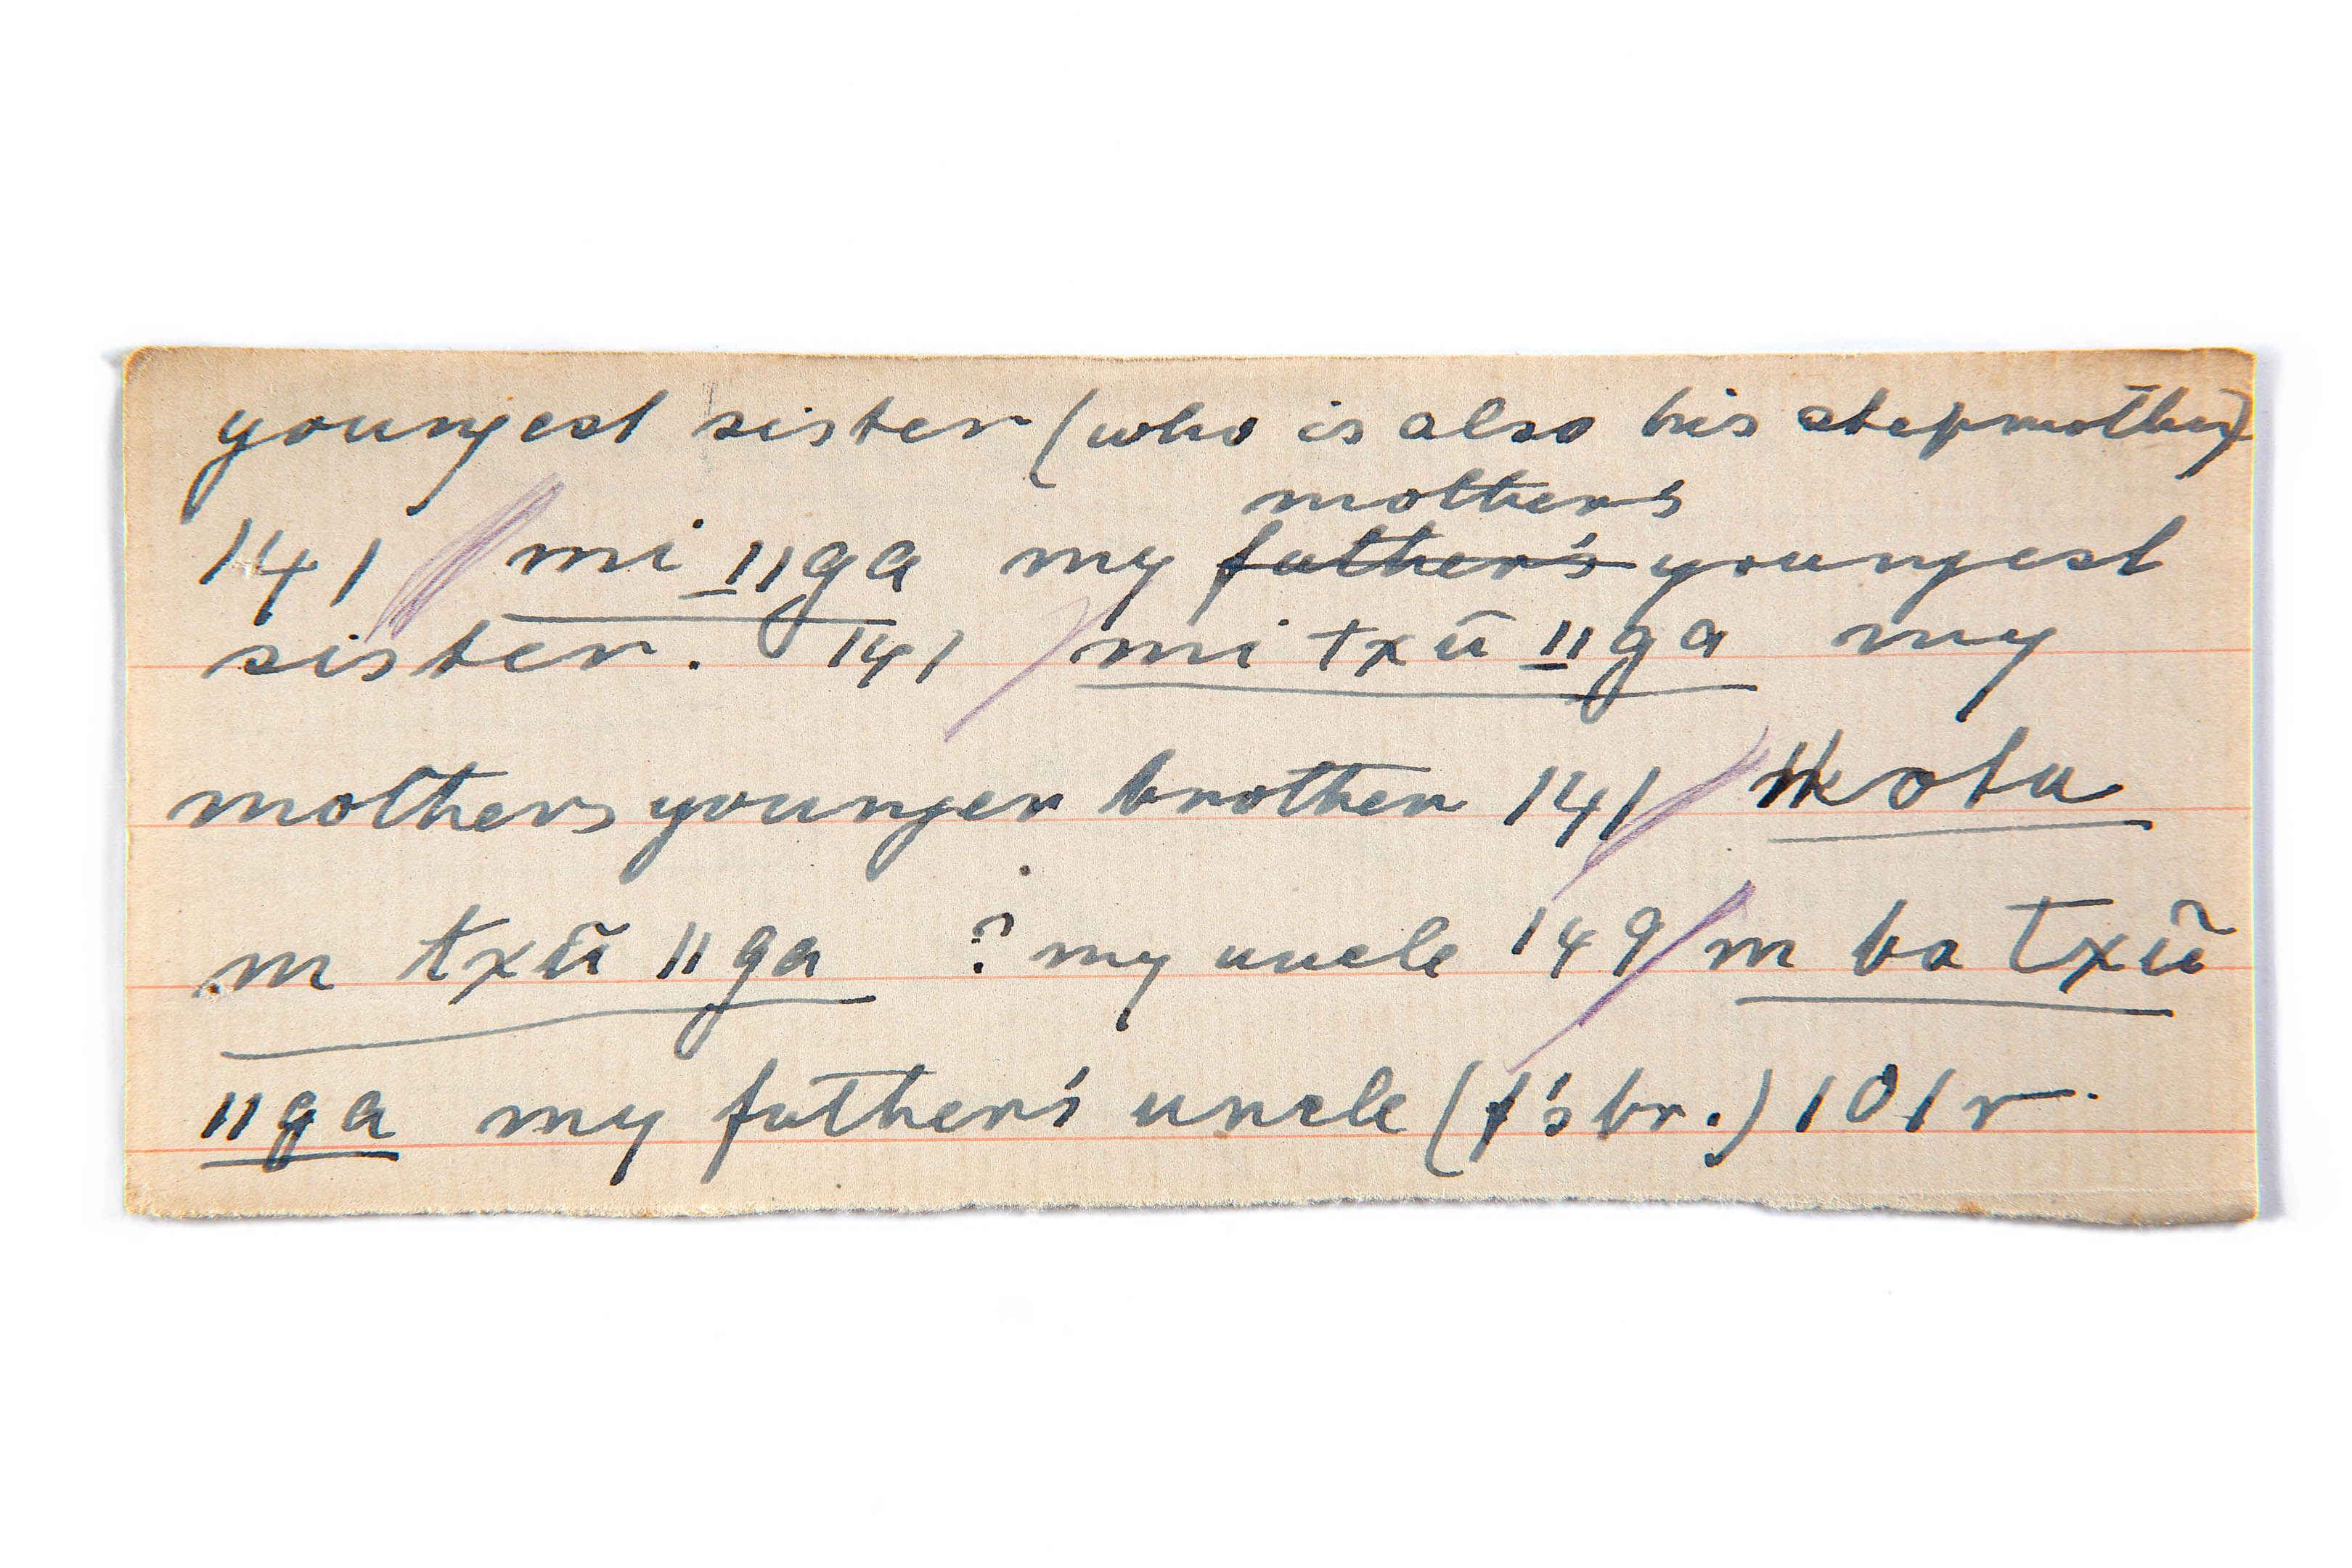 youngest sister (who is also his stepmother)
mothers
141 / mi ǁga my father's youngest
sister. 141 / mi txũ ǁga my
mothers younger brother 141 / ǁkoba
m txũ ǁga ? my uncle 149 / m ba txũ
ǁga my father's uncle (f's br.) 101 r.